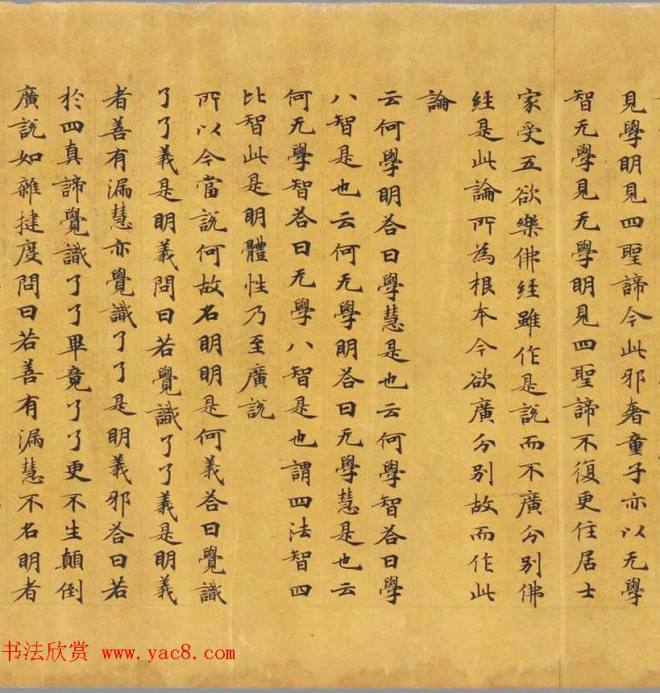 見學明見四聖諦今此邪奢童子亦以无學
智无學見无學明見四聖諦不復更住居士
家受五欲樂佛經雖作是說而不廣分別佛
經是此論所為根本今欲廣分別故而作此
論
云何學明答曰學慧是也云何學智答曰學
八智是也云何无學明答曰无學慧是也云
何无學智答曰无學八智是也謂四法智四
比智此是明體性乃至廣說
所以今當說何故名明明是何義答曰覺識
了了義是明義問曰若覺識了了義是明義
者善有漏慧亦覺識了了是明義邪答曰若
於四真諦覺識了了畢竟了了更不生顛倒
廣說如雜揵度問曰若善有漏慧不名明者
书法欣赏 www.yac8.com